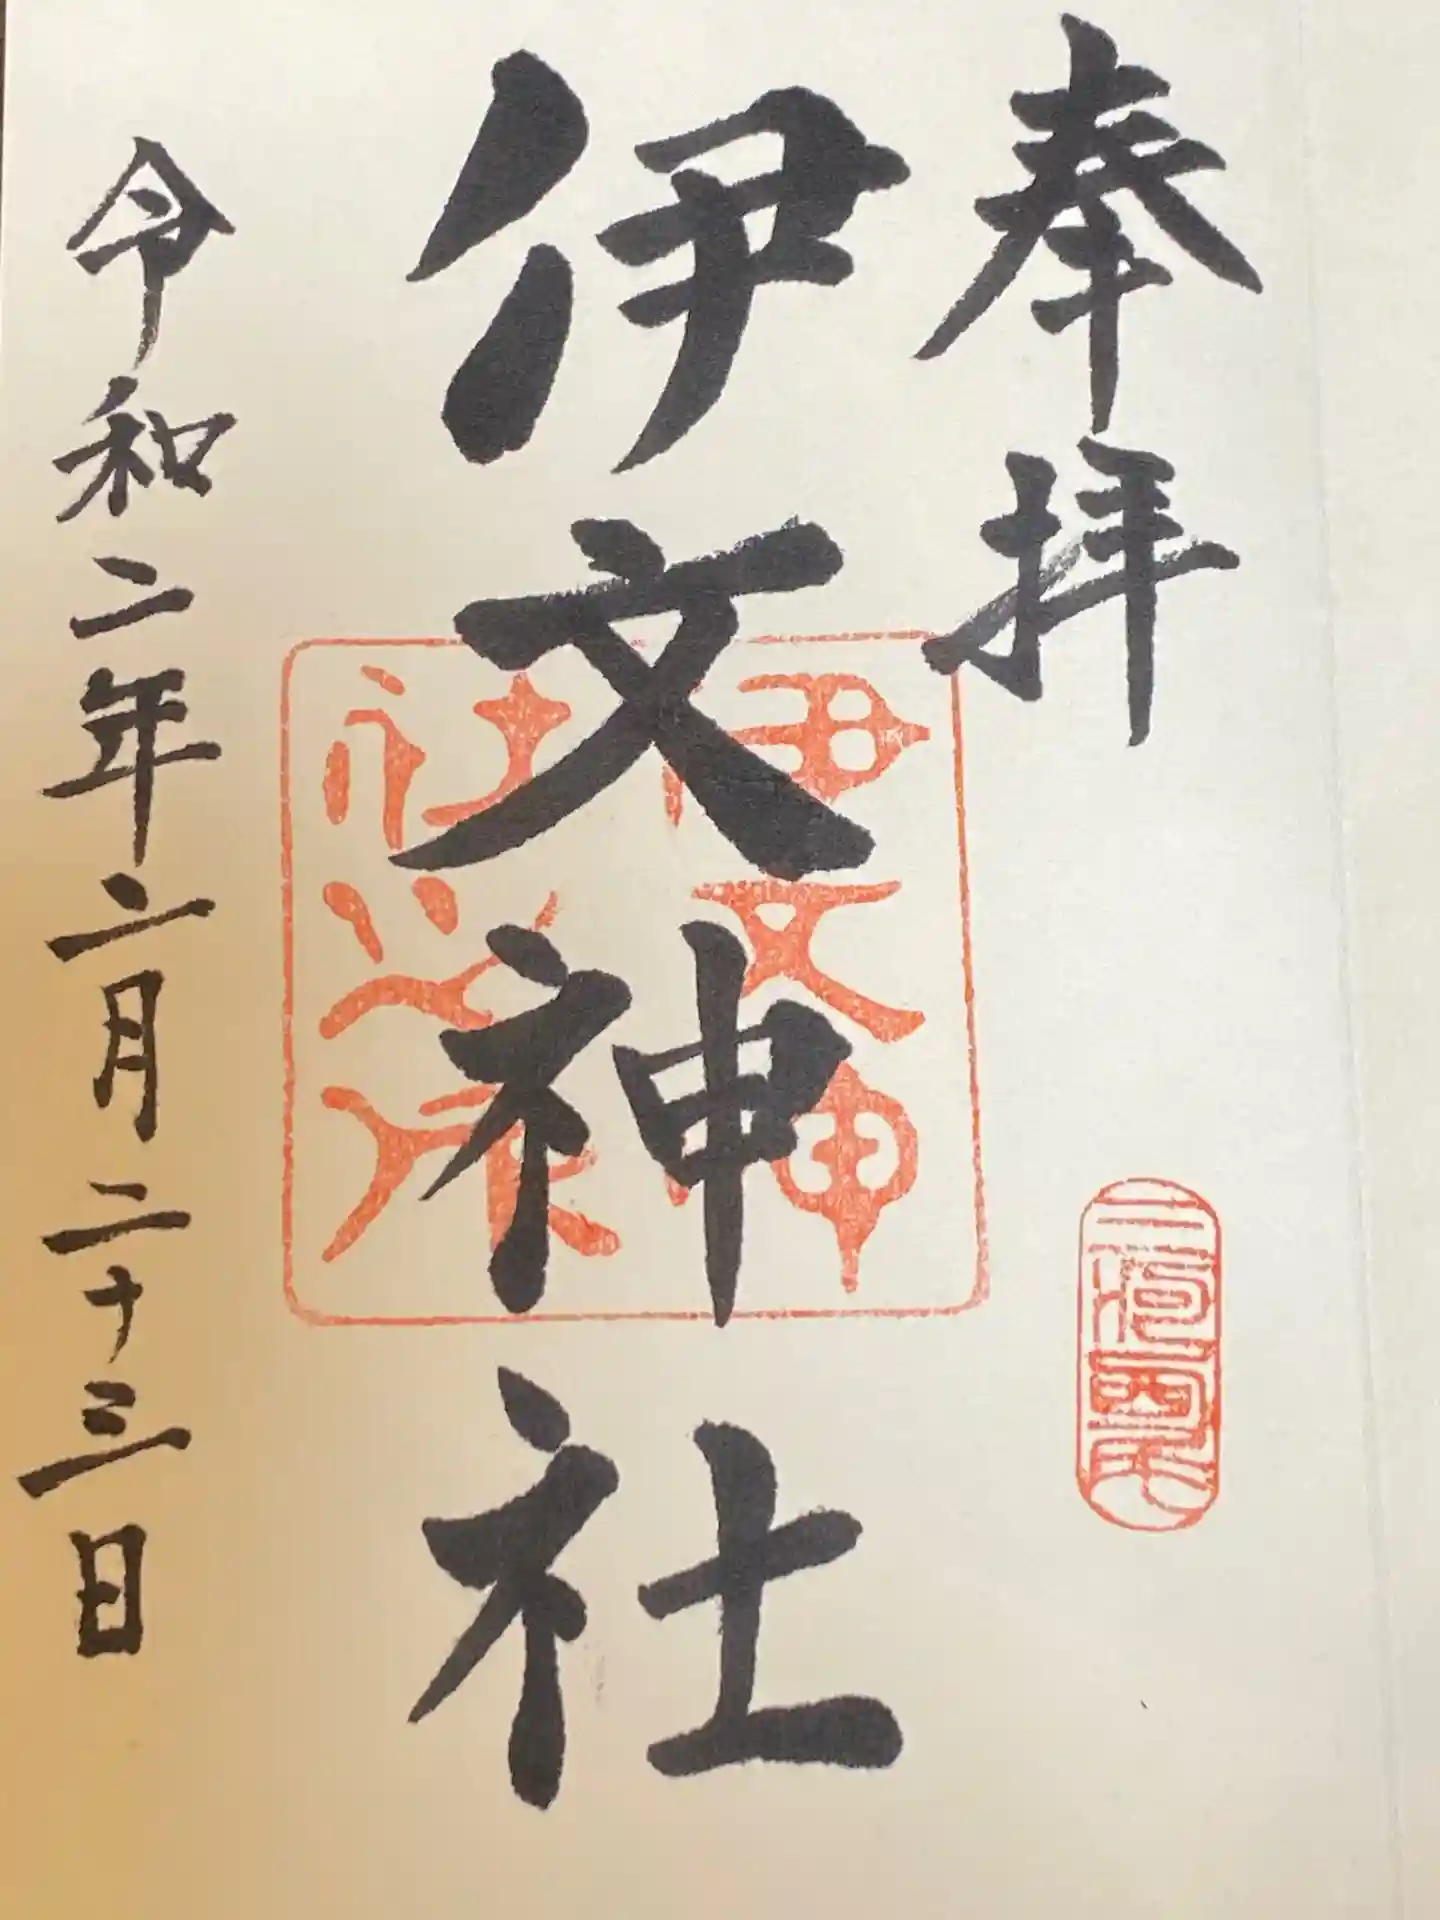 奉拝
三河西尾
伊文神社
伊文神
社
令和二年二月二十三日